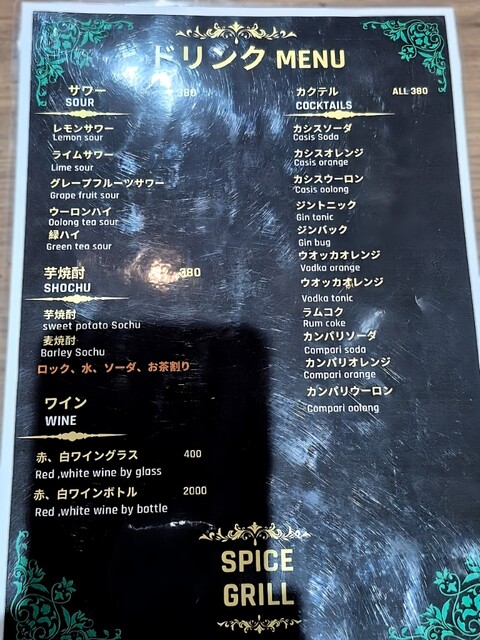 ドリンク MENU
サワー 380
SOUR
レモンサワー
Lemon sour
ライムサワー
Lime sour
グレープフルーツサワー
Grape fruit sour
ウーロンハイ
Oolong tea sour
緑ハイ
Green tea sour
芋焼酎 380
SHOCHU
芋焼酎
sweet potato Sochu
麦焼酎
Barley Sochu
ロック、水、ソーダ、お茶割り
ワイン
WINE
赤、白ワイングラス 400
Red ,white wine by glass
赤、白ワインボトル 2000
Red ,white wine by bottle
カクテル ALL 380
COCKTAILS
カシスソーダ
Casis Soda
カシスオレンジ
Casis orange
カシスウーロン
Casis oolong
ジントニック
Gin tonic
ジンバック
Gin bug
ウオッカオレンジ
Vodka orange
ウオッカオレンジ
Vodka tonic
ラムコク
Rum coke
カンパリソーダ
Compari soda
カンパリオレンジ
Compari orange
カンパリウーロン
Compari oolong
SPICE
GRILL